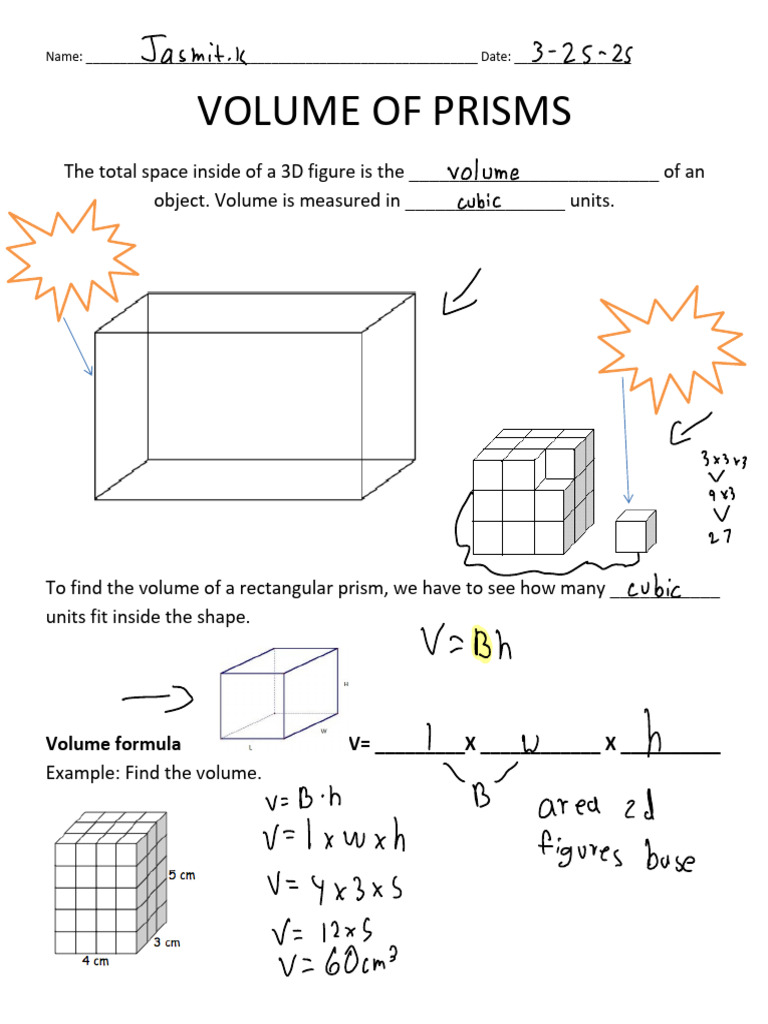 Name: Jasmit.k Date: 3-25-25
VOLUME OF PRISMS
The total space inside of a 3D figure is the volume of an
object. Volume is measured in cubic units.
3x3x3
9x3
27
To find the volume of a rectangular prism, we have to see how many cubic
units fit inside the shape.
V=Bh
H
W
L
Volume formula V= l X w X h
B
Example: Find the volume.
area 2d
figures base
V=B·h
V=l x w x h
V=4x3x5
V=12x5
V=60cm³
5 cm
3 cm
4 cm